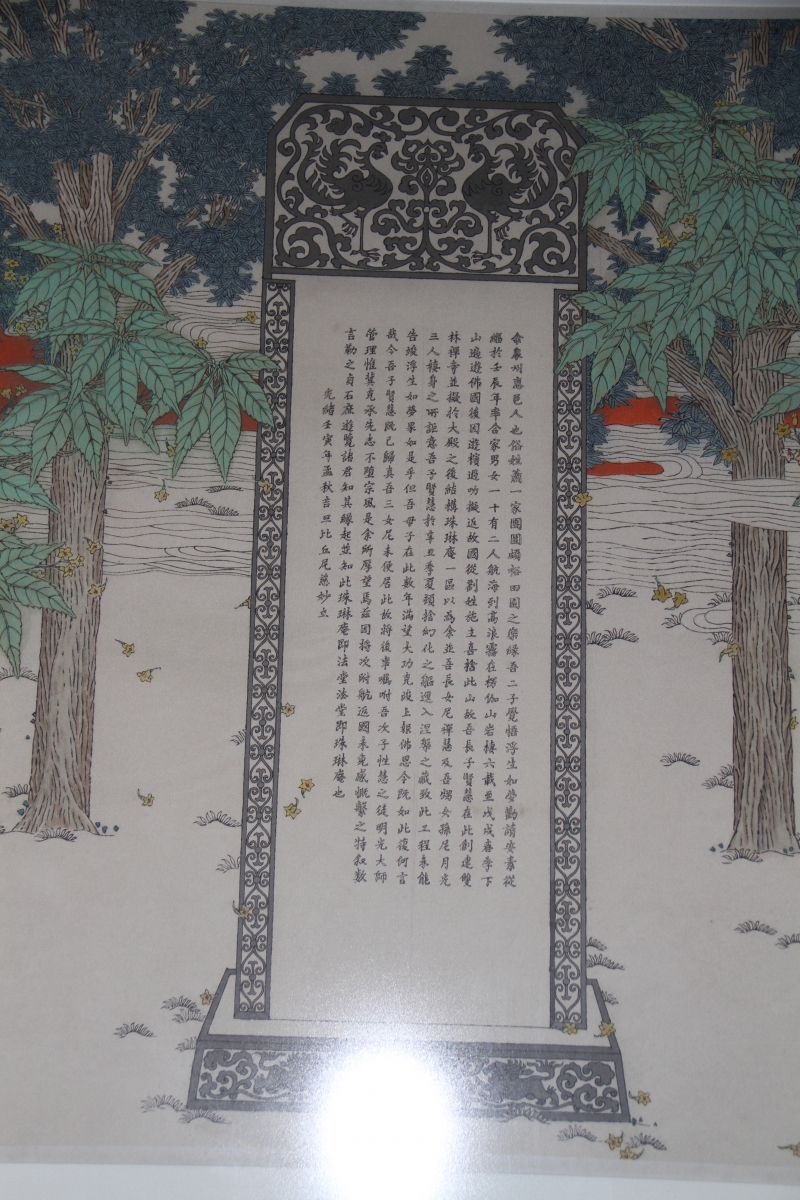 余泉州惠邑人也俗姓蕭一家團圓頗裕田園之樂緣吾二子覺悟浮生如夢勸請安素從
緇於壬辰年率合家男女一十有二人航海到高浪霧在楞伽山岩棲六載至戊戌春季下
山遍遊佛國後因遊檳過叻擬返故國從劉姓施主喜捨此山故吾長子賢慧在此創建雙
林禪寺並擬於大殿之後結構珠琳庵一區以為余並吾長女尼禪慧及吾甥女孫尼月光
三人棲身之所詎意吾子賢慧於辛丑季夏頓捨幻化之軀遽入涅槃之藏致此工程未能
告竣浮生如夢果如是乎但吾母子在此數年滿望大功克竣上報佛恩今既如此復何言
哉今吾子賢慧既已歸真吾三女尼未便居此故將後事囑咐吾次子性慧之徒明光大師
管理惟冀克承先志不墮宗風是余所厚望焉茲因將次附航返國未免感慨繫之特敘數
言勒之貞石庶遊覽諸君知其緣起並知此珠琳庵即法堂法堂即珠琳庵也
光緒壬寅年孟秋吉旦比丘尼慈妙立